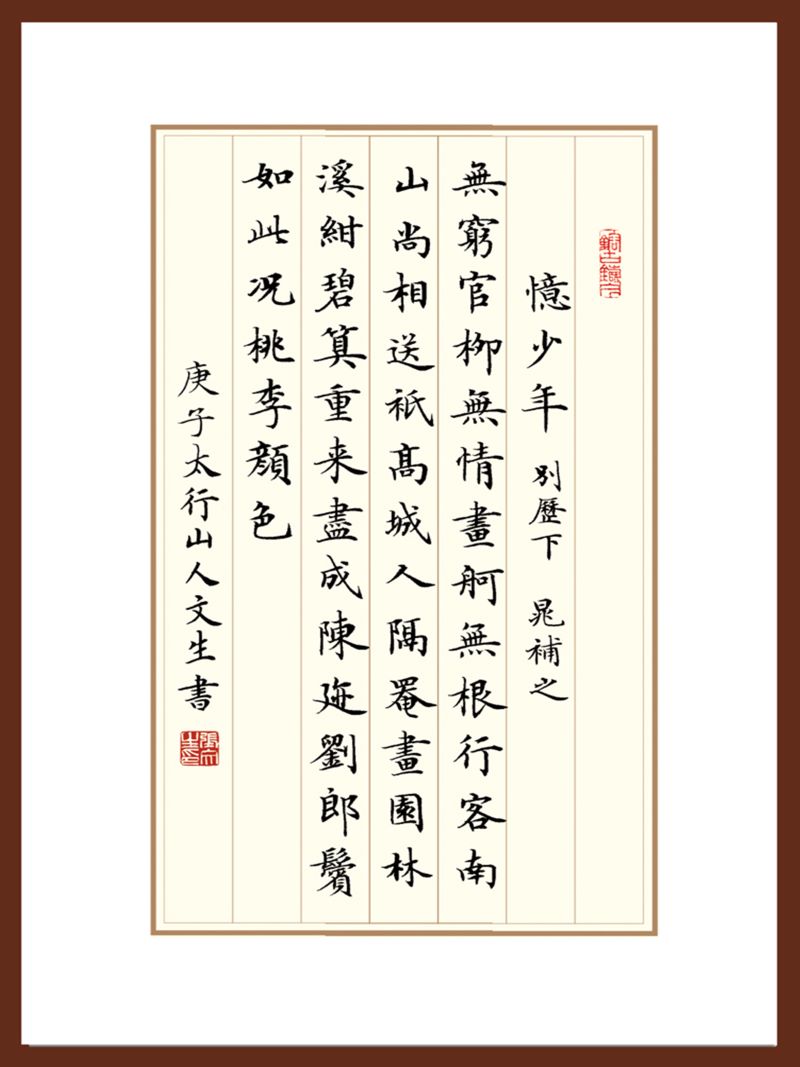 憶少年 別歷下 晁補之
無窮官柳無情畫舸無根行客南
山尚相送衹髙城人隔罨畫園林
溪紺碧算重来盡成陳迹劉郎鬢
如此况桃李顔色
庚子太行山人文生書
張文生印